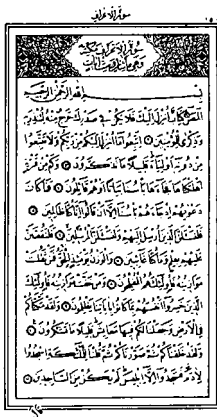 سورة الاعراف
سورة الاعراف مكية
وهي مائتان وست آيات
بسم الله الرحمن الرحيم
المص كتاب أنزل إليك فلا يكن في صدرك حرج منه لتنذر به
وذكرى للمؤمنين ۝ اتبعوا ما أنزل إليكم من ربكم ولا تتبعوا
من دونه أولياء قليلا ما تذكرون ۝ وكم من قرية
أهلكناها فجاءها بأسنا بياتا أو هم قائلون ۝ فما كان
دعويهم إذ جاءهم بأسنا إلا أن قالوا إنا كنا ظالمين ۝
فلنسئلن الذين أرسل إليهم ولنسئلن المرسلين ۝ فلنقصن
عليهم بعلم وما كنا غائبين ۝ والوزن يومئذ الحق فمن ثقلت
موازينه فأولئك هم المفلحون ۝ ومن خفت موازينه فأولئك
الذين خسروا أنفسهم بما كانوا بآياتنا يظلمون ۝ ولقد مكناكم
في الأرض وجعلنا لكم فيها معايش قليلا ما تشكرون ۝
ولقد خلقناكم ثم صورناكم ثم قلنا للملائكة اسجدوا
لآدم فسجدوا إلا إبليس لم يكن من الساجدين ۝